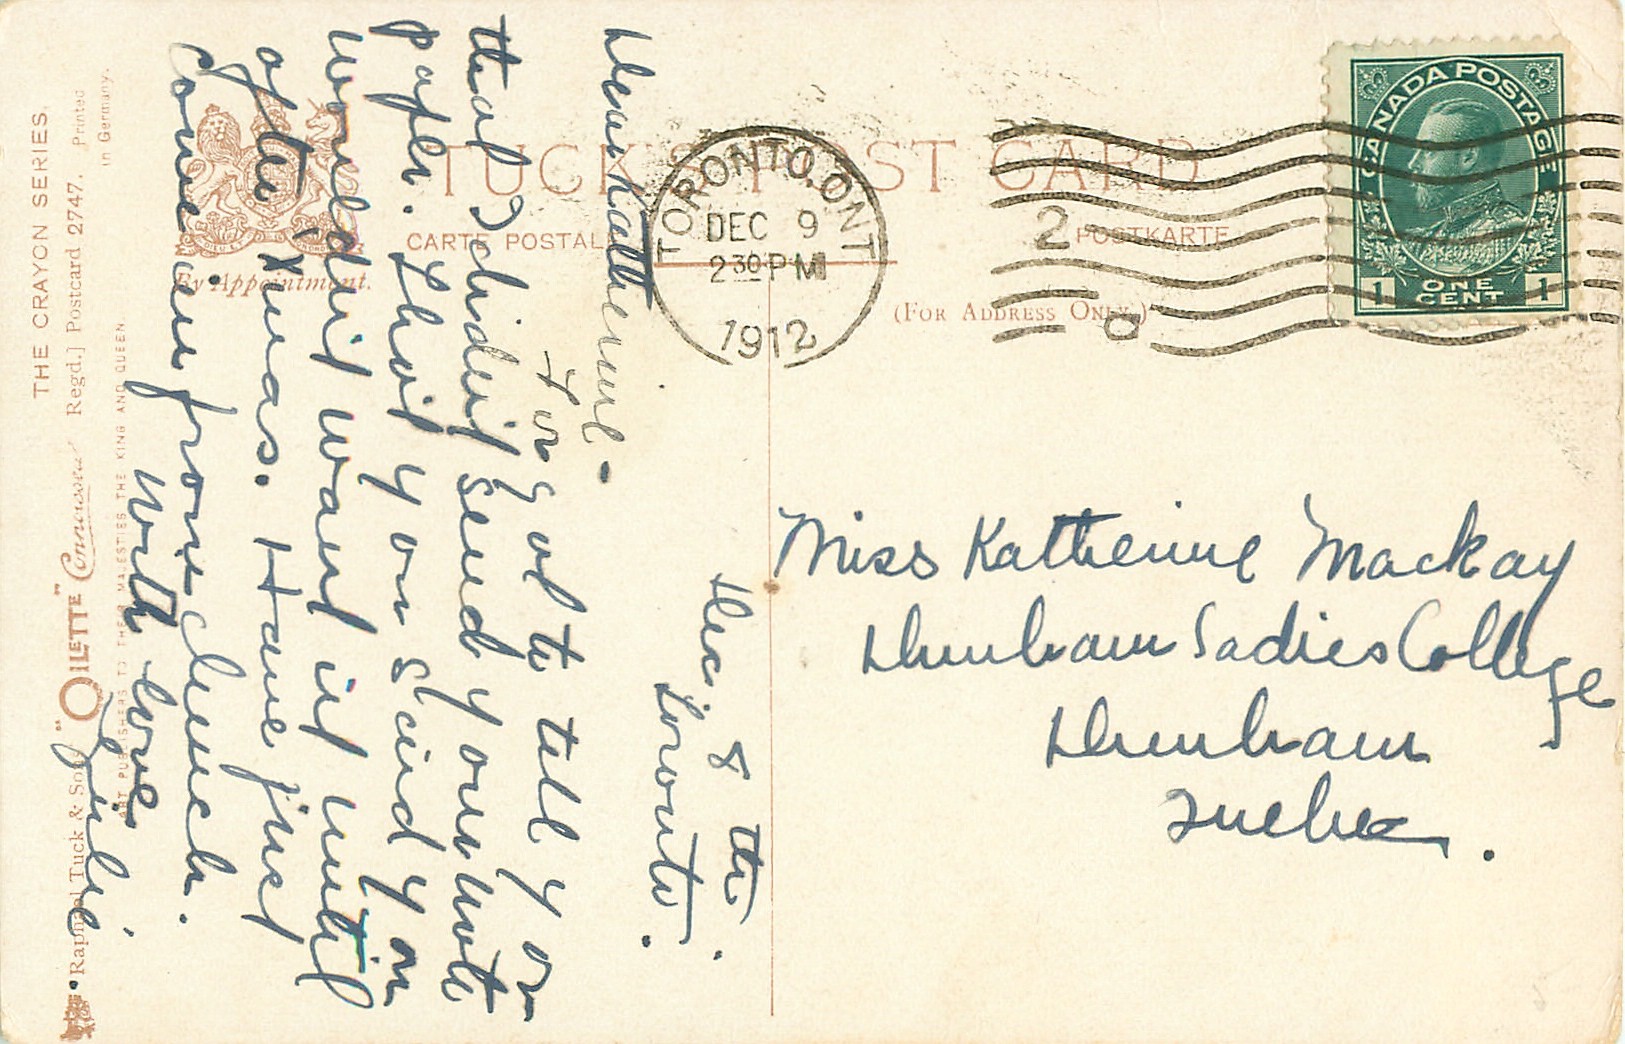 THE CRAYON SERIES.
Regd.] Postcard 2747. Printed
in Germany.
Raphael Tuck & Sons "OILETTE" Connoisseur
ART PUBLISHERS TO THEIR MAJESTIES THE KING AND QUEEN.
By Appointment.
TUCK'S POST CARD
CARTE POSTALE
POSTKARTE
(FOR ADDRESS ONLY.)
TORONTO, ONT
DEC 9
2 30 PM
1912
2
CANADA POSTAGE
1 ONE CENT 1
Dec 8 th.
Toronto.
Dear Katherine -
Forgot to tell you
that I didn't send your note
paper. Thot you said you
wouldn't want it until
after Xmas. Have just
come in from church.
With love
Miss Katherine Mackay
Dunham Ladies College
Dunham
Quebec.